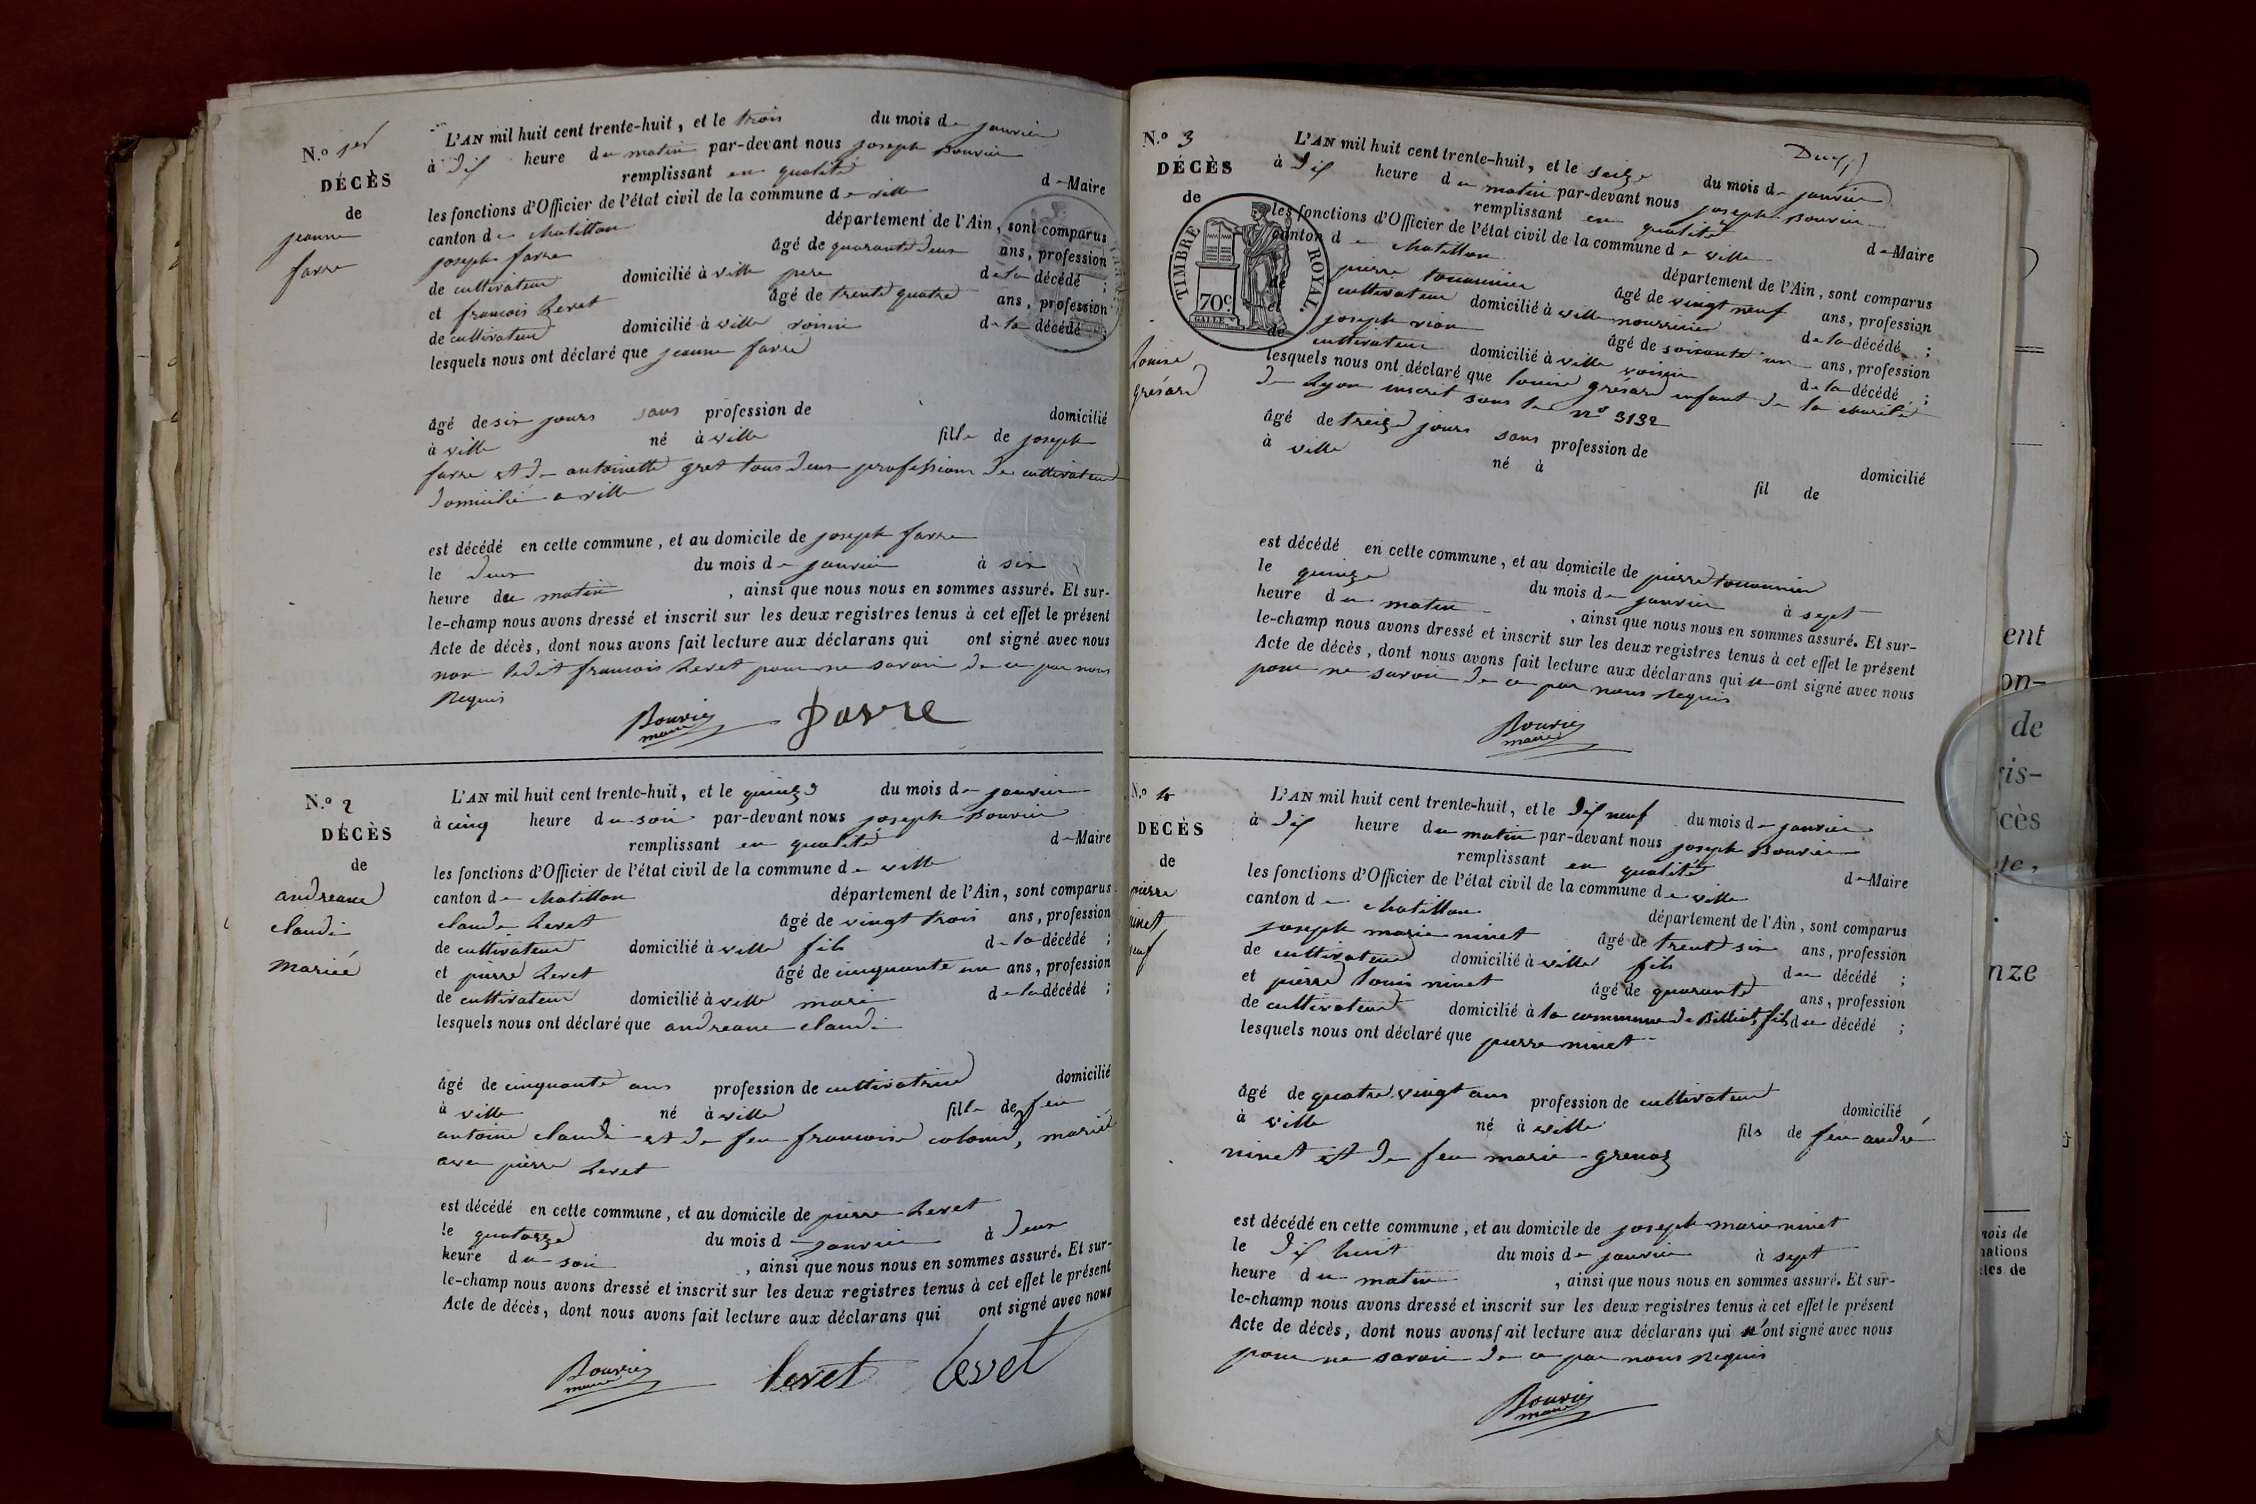 N.º 1er
DÉCÈS
de
jeanne
favre
L'AN mil huit cent trente-huit, et le trois du mois de janvier
à dix heure du matin par-devant nous joseph Bouvier
remplissant en qualité de Maire
les fonctions d'Officier de l'état civil de la commune de ville
canton de chatillon département de l'Ain, sont comparus
joseph favre âgé de quarante deux ans, profession
de cultivateur domicilié à ville pere de la décédé ;
et francois Levet âgé de trente quatre ans, profession
de cultivateur domicilié à ville voisin de la décédé ;
lesquels nous ont déclaré que jeanne favre
âgé de six jours sans profession de domicilié
à ville né à ville fille de joseph
favre et de antoinette gret tous deux profession de cultivateur
domicilié a ville
est décédé en cette commune, et au domicile de joseph favre
le deux du mois de janvier à six
heure du matin, ainsi que nous nous en sommes assuré. Et sur-
le-champ nous avons dressé et inscrit sur les deux registres tenus à cet effet le présent
Acte de décès, dont nous avons fait lecture aux déclarans qui ont signé avec nous
non ledit francois Levet pour ne savoir de ce par nous
Requis
Bouvier Favre
maire
N.º 2
DÉCÈS
de
andreane
claudi
mariée
L'AN mil huit cent trente-huit, et le quinze du mois de janvier
à cinq heure du soir par-devant nous joseph Bouvier
remplissant en qualité de Maire
les fonctions d'Officier de l'état civil de la commune de ville
canton de chatillon département de l'Ain, sont comparus
claude Levet âgé de vingt trois ans, profession
de cultivateur domicilié à ville fils de la décédé ;
et pierre Levet âgé de cinquante un ans, profession
de cultivateur domicilié à ville mari de la décédé ;
lesquels nous ont déclaré que andreane claudi
âgé de cinquante ans profession de cultivatrice domicilié
à ville né à ville fille de feu
antoine claudi et de feu francoise colomb, mariée
avec pierre Levet
est décédé en cette commune, et au domicile de pierre Levet
le quatorze du mois de janvier à deux
heure du soir, ainsi que nous nous en sommes assuré. Et sur-
le-champ nous avons dressé et inscrit sur les deux registres tenus à cet effet le présent
Acte de décès, dont nous avons fait lecture aux déclarans qui ont signé avec nous
Bouvier levet Levet
maire
N.º 3
DÉCÈS
de
Louise
grésard
TIMBRE ROYAL.
70c.
L'AN mil huit cent trente-huit, et le seize du mois de janvier
à dix heure du matin par-devant nous joseph Bouvier
remplissant en qualité de Maire
les fonctions d'Officier de l'état civil de la commune de ville
canton de chatillon département de l'Ain, sont comparus
pierre âgé de vingt neuf ans, profession
de cultivateur domicilié à ville nourricier de la décédé ;
et joseph âgé de soixante un ans, profession
de cultivateur domicilié à ville voisin de la décédé ;
lesquels nous ont déclaré que louise grésard enfant de la charité
de Lyon inscrit sous le nº 3132
âgé de treize jours sans profession de domicilié
à ville né à fil de
est décédé en cette commune, et au domicile de pierre
le quinze du mois de janvier à sept
heure du matin, ainsi que nous nous en sommes assuré. Et sur-
le-champ nous avons dressé et inscrit sur les deux registres tenus à cet effet le présent
Acte de décès, dont nous avons fait lecture aux déclarans qui n'ont signé avec nous
pour ne savoir de ce par nous Requis
Bouvier
maire
N.º 4
DÉCÈS
de
pierre
ninet
L'AN mil huit cent trente-huit, et le dix neuf du mois de janvier
à dix heure du matin par-devant nous joseph Bouvier
remplissant en qualité de Maire
les fonctions d'Officier de l'état civil de la commune de ville
canton de chatillon département de l'Ain, sont comparus
joseph marie ninet âgé de trente six ans, profession
de cultivateur domicilié à ville fils du décédé ;
et pierre louis ninet âgé de quarante ans, profession
de cultivateur domicilié à la commune de Billiat, fils du décédé ;
lesquels nous ont déclaré que pierre ninet
âgé de quatre vingt ans profession de cultivateur domicilié
à ville né à ville fils de feu andré
ninet et de feu marie grenoz
est décédé en cette commune, et au domicile de joseph marie ninet
le dix huit du mois de janvier à sept
heure du matin, ainsi que nous nous en sommes assuré. Et sur-
le-champ nous avons dressé et inscrit sur les deux registres tenus à cet effet le présent
Acte de décès, dont nous avons fait lecture aux déclarans qui n'ont signé avec nous
pour ne savoir de ce par nous Requis
Bouvier
maire